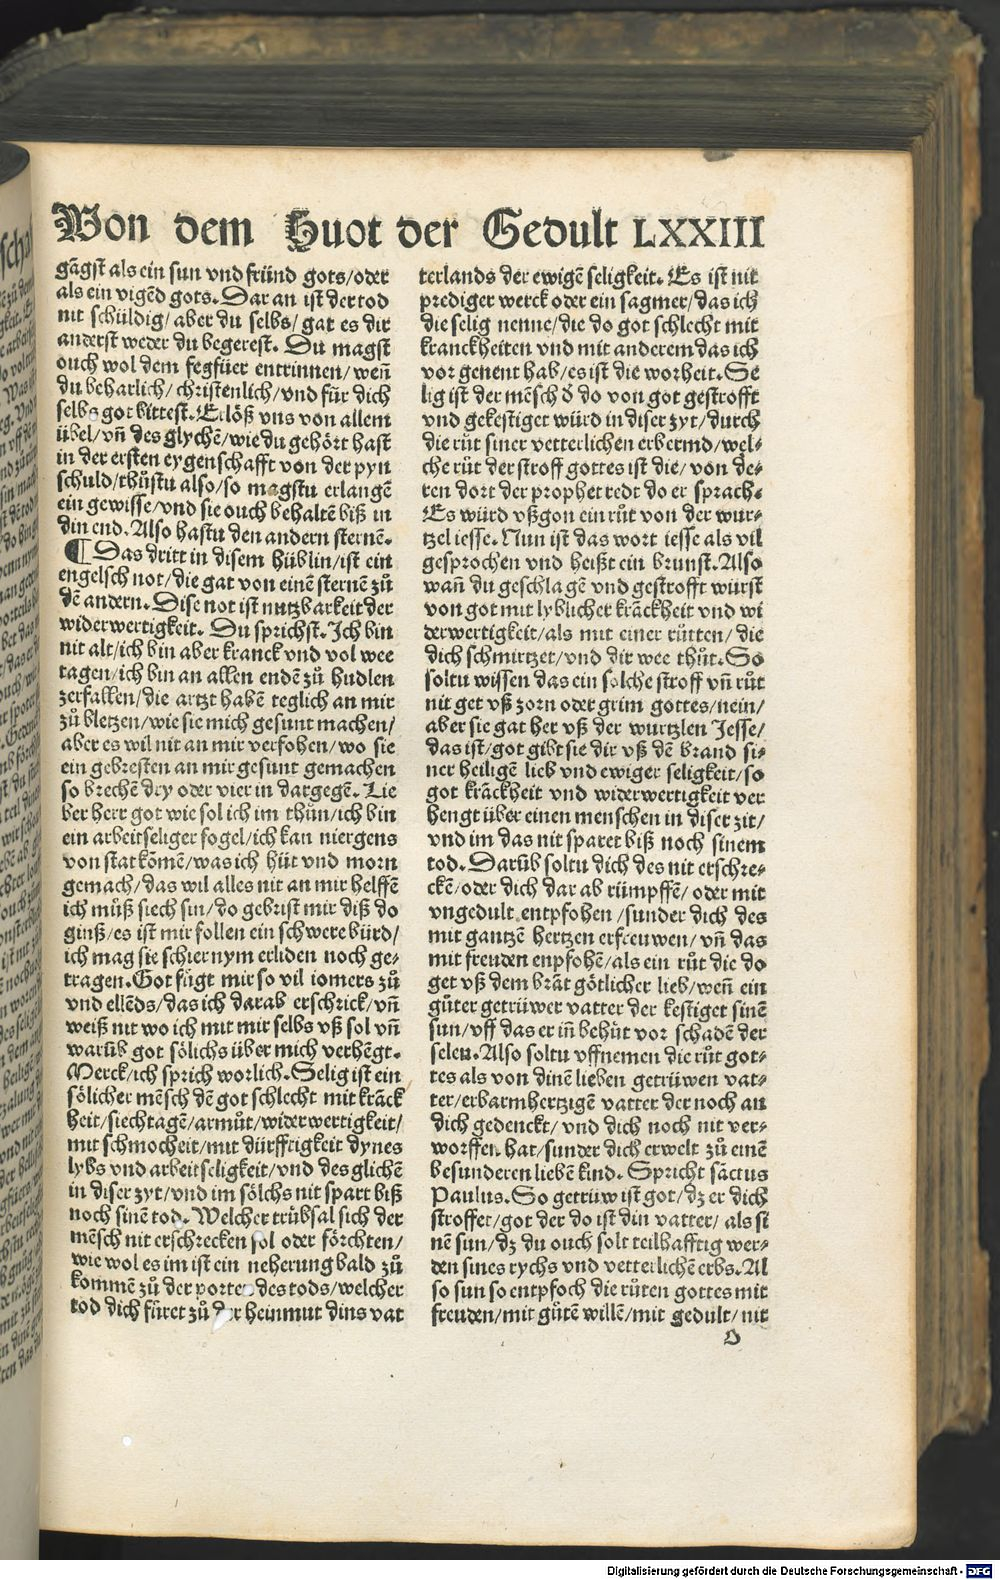 Von dem Huot der Gedult LXXIII
gāgst als ein sun vnd fründ gots/oder
als ein vigēd gots. Dar an ist der tod
nit schüldig/aber du selbs/gat es dir
anderst weder du begerest. Du magst
ouch wol dem fegfüer entrinnen/weñ
du beharlich/christenlich/vnd für dich
selbs got bittest. Erlöß vns von allem
übel/vñ des glychē/wie du gehört hast
in der ersten eygenschafft von der pyn
schuld/thůstu also/so magstu erlangē
ein gewisse/vnd sie ouch behaltē biß in
din end. Also hastu den andern sternē.
¶ Das dritt in disem hüblin/ist ein
engelsch not/die gat von einē sternē zů
dē andern. Dise not ist nutzbarkeit der
widerwertigkeit. Du sprichst. Ich bin
nit alt/ich bin aber kranck vnd vol wee
tagen/ich bin an allen endē zů hudlen
zerfallen/die artzt habē teglich an mir
zů bletzen/wie sie mich gesunt machen/
aber es wil nit an mir verfohen/wo sie
ein gebresten an mir gesunt gemachen
so brechē dry oder vier in dargegē. Lie
ber herr got wie sol ich im thůn/ich bin
ein arbeitseliger fogel/ich kan niergens
von stat kōmē/was ich hüt vnd morn
gemach/das wil alles nit an mir helffē
ich můß siech sin/do gebrist mir diß do
ginß/es ist mir follen ein schwere bürd/
ich mag sie schier nym erliden noch ge-
tragen. Got fügt mir so vil iomers zů
vnd ellēds/das ich darab erschrick/vñ
weiß nit wo ich mit mir selbs vß sol vñ
warūb got sölichs über mich verhēgt.
Merck/ich sprich worlich. Selig ist ein
sölicher mēsch dē got schlecht mit krāck
heit/siechtagē/armůt/widerwertigkeit/
mit schmocheit/mit dürfftigkeit dynes
lybs vnd arbeitseligkeit/vnd des glichē
in diser zyt/vnd im sölchs nit spart biß
noch sinē tod. Welcher trübsal sich der
mēsch nit erschrecken sol oder förchten/
wie wol es im ist ein neherung bald zů
kommē zů der porten des tods/welcher
tod dich füret zů der heinmut dins vat
terlands der ewigē seligkeit. Es ist nit
prediger werck oder ein sagmer/das ich
die selig nenne/die do got schlecht mit
kranckheiten vnd mit anderem das ich
vor genent hab/es ist die worheit. Se
lig ist der mēsch d̄ do von got gestrofft
vnd gekestiget würd in diser zyt/durch
die růt siner vetterlichen erbermd/wel-
che růt der stroff gottes ist die/von de-
ren dort der prophet redt do er sprach.
Es würd vßgon ein růt von der wur-
tzel iesse. Nun ist das wort iesse als vil
gesprochen vnd heißt ein brunst. Also
wañ du geschlagē vnd gestrofft würst
von got mit lyblicher krāckheit vnd wi
derwertigkeit/als mit einer růtten/die
dich schmirtzet/vnd dir wee thůt. So
soltu wissen das ein solche stroff vñ růt
nit get vß zorn oder grim gottes/nein/
aber sie gat her vß der wurtzlen Jesse/
das ist/got gibt sie dir vß dē brand si-
ner heiligē lieb vnd ewiger seligkeit/so
got krāckheit vnd widerwertigkeit ver
hengt über einen menschen in diser zit/
vnd im das nit sparet biß noch sinem
tod. Darūb soltu dich des nit erschre-
ckē/oder dich dar ab rümpffē/oder mit
vngedult entpfohen/sunder dich des
mit gantzē hertzen erfreuwen/vñ das
mit freuden enpfohē/als ein růt die do
get vß dem brāt götlicher lieb/weñ ein
gůter getrüwer vatter der kestiget sinē
sun/vff das er iñ behüt vor schadē der
selen. Also soltu vffnemen die růt got-
tes als von dinē lieben getrüwen vat-
ter/erbarmhertzigē vatter der noch an
dich gedenckt/vnd dich noch nit ver-
worffen hat/sunder dich erwelt zů einē
besunderen liebē kind. Spricht sāctus
Paulus. So getrüw ist got/dz er dich
stroffet/got der do ist din vatter/als si
nē sun/dz du ouch solt teilhafftig wer-
den sines rychs vnd vetterlichē erbs. Al
so sun so entpfoch die růten gottes mit
freuden/mit gůtē willē/mit gedult/nit
Digitalisierung gefördert durch die Deutsche Forschungsgemeinschaft - DFG